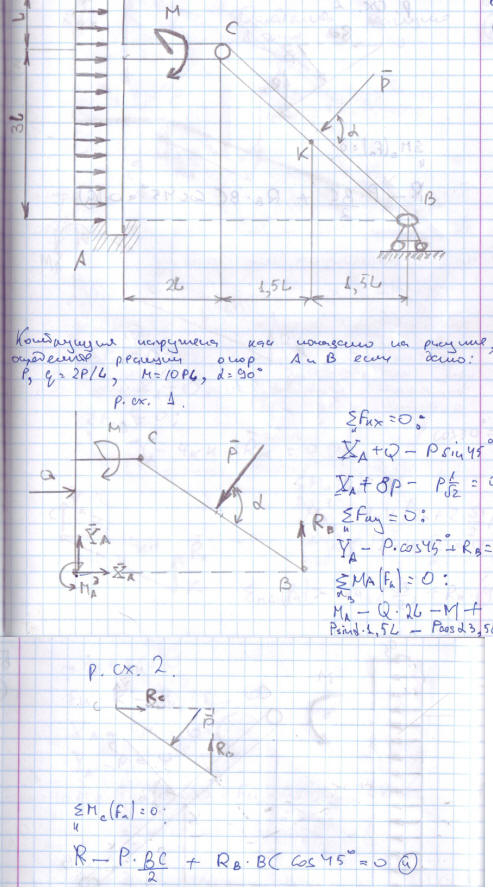 M
C
L
P̄
α
3L
K
B
A
2L
1,5L
1,5L
Конструкция нагружена как показано на рисунке,
определить реакции опор A и B если дано:
P, q = 2P/L, M = 10PL, α = 90°
р. сх. 1.
M
C
P̄
α
Q
R_B
ȲA
X̄A
M_A
B
ΣFкx = 0:
X_A + Q − P sin 45°
X_A + 8P − P 1/√2 = 0
ΣFкy = 0:
Y_A − P·cos 45° + R_B =
ΣMA(Fк) = 0:
M_A − Q·2L − M +
P sin α·1,5L − P cos α 3,5L
р. сх. 2.
C
Rc
P̄
R_B
ΣM_c(Fк) = 0:
R − P·BC/2 + R_B·BC cos 45° = 0